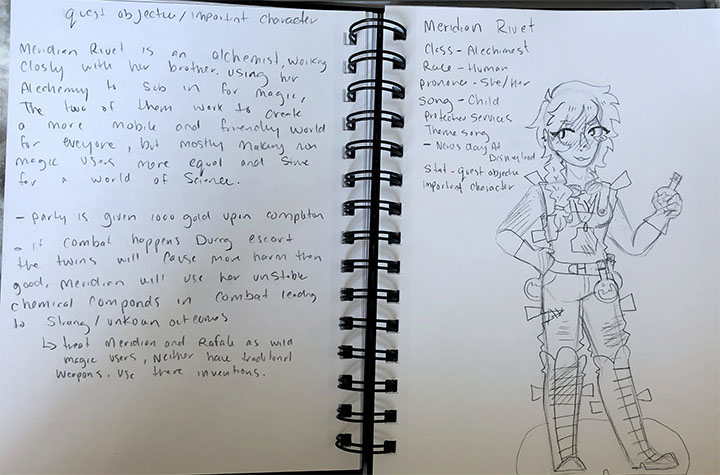 quest objective/important character
Meridian Rivet is an alchemist, working
closly with her brother. using her
Alechemy to sub in for magic,
The two of them work to create
a more mobile and friendly world
for eveyore, but mostly making non
magic users more equal and strive
for a world of Science.
- party is given 1000 gold upon completion
- if combat happens During escort
the twins will cause more harm then
good, Meridian will use her unstable
chemical componds in combat leading
to Strang/unkown outcomes
↳ treat Meridian and Rafale as wild
magic users, Neither have traditonal
weapons. use there inventions.
Meridian Rivet
Class - Alechimest
Race - Human
pronouns - She/Her
Song - Child
Protective Services
Theme song
- Nervs day At
Disneyland
Stat - quest objective
important character